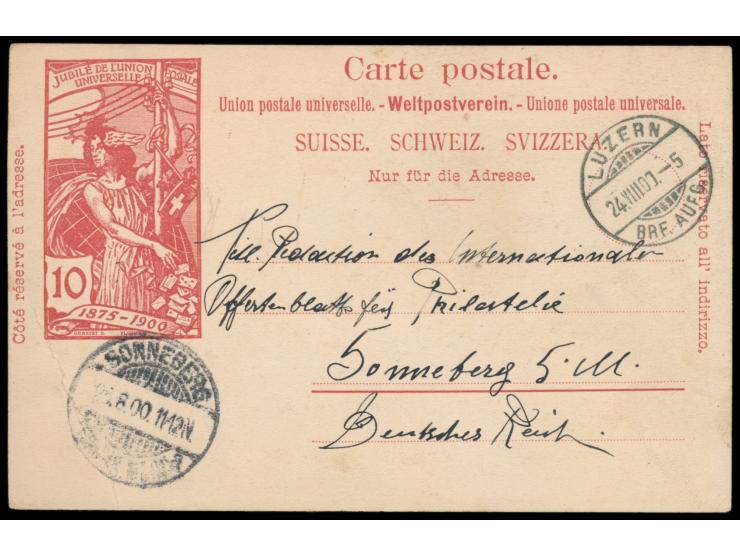 JUBILÉ DE L'UNION
POSTALE
UNIVERSELLE
10
1875-1900
GRASSET
Carte postale.
Union postale universelle. - Weltpostverein. - Unione postale universale.
SUISSE. SCHWEIZ. SVIZZERA.
Nur für die Adresse.
Côté réservé à l'adresse.
Lato riservato all' indirizzo.
LUZERN
24.VIII.00.-5
BRF. AUFG.
Redaction des Internationalen
Offertenblatts für Philatelie
Sonneberg S. M.
Deutsches Reich.
SONNEBERG
8.00. 11-12N.